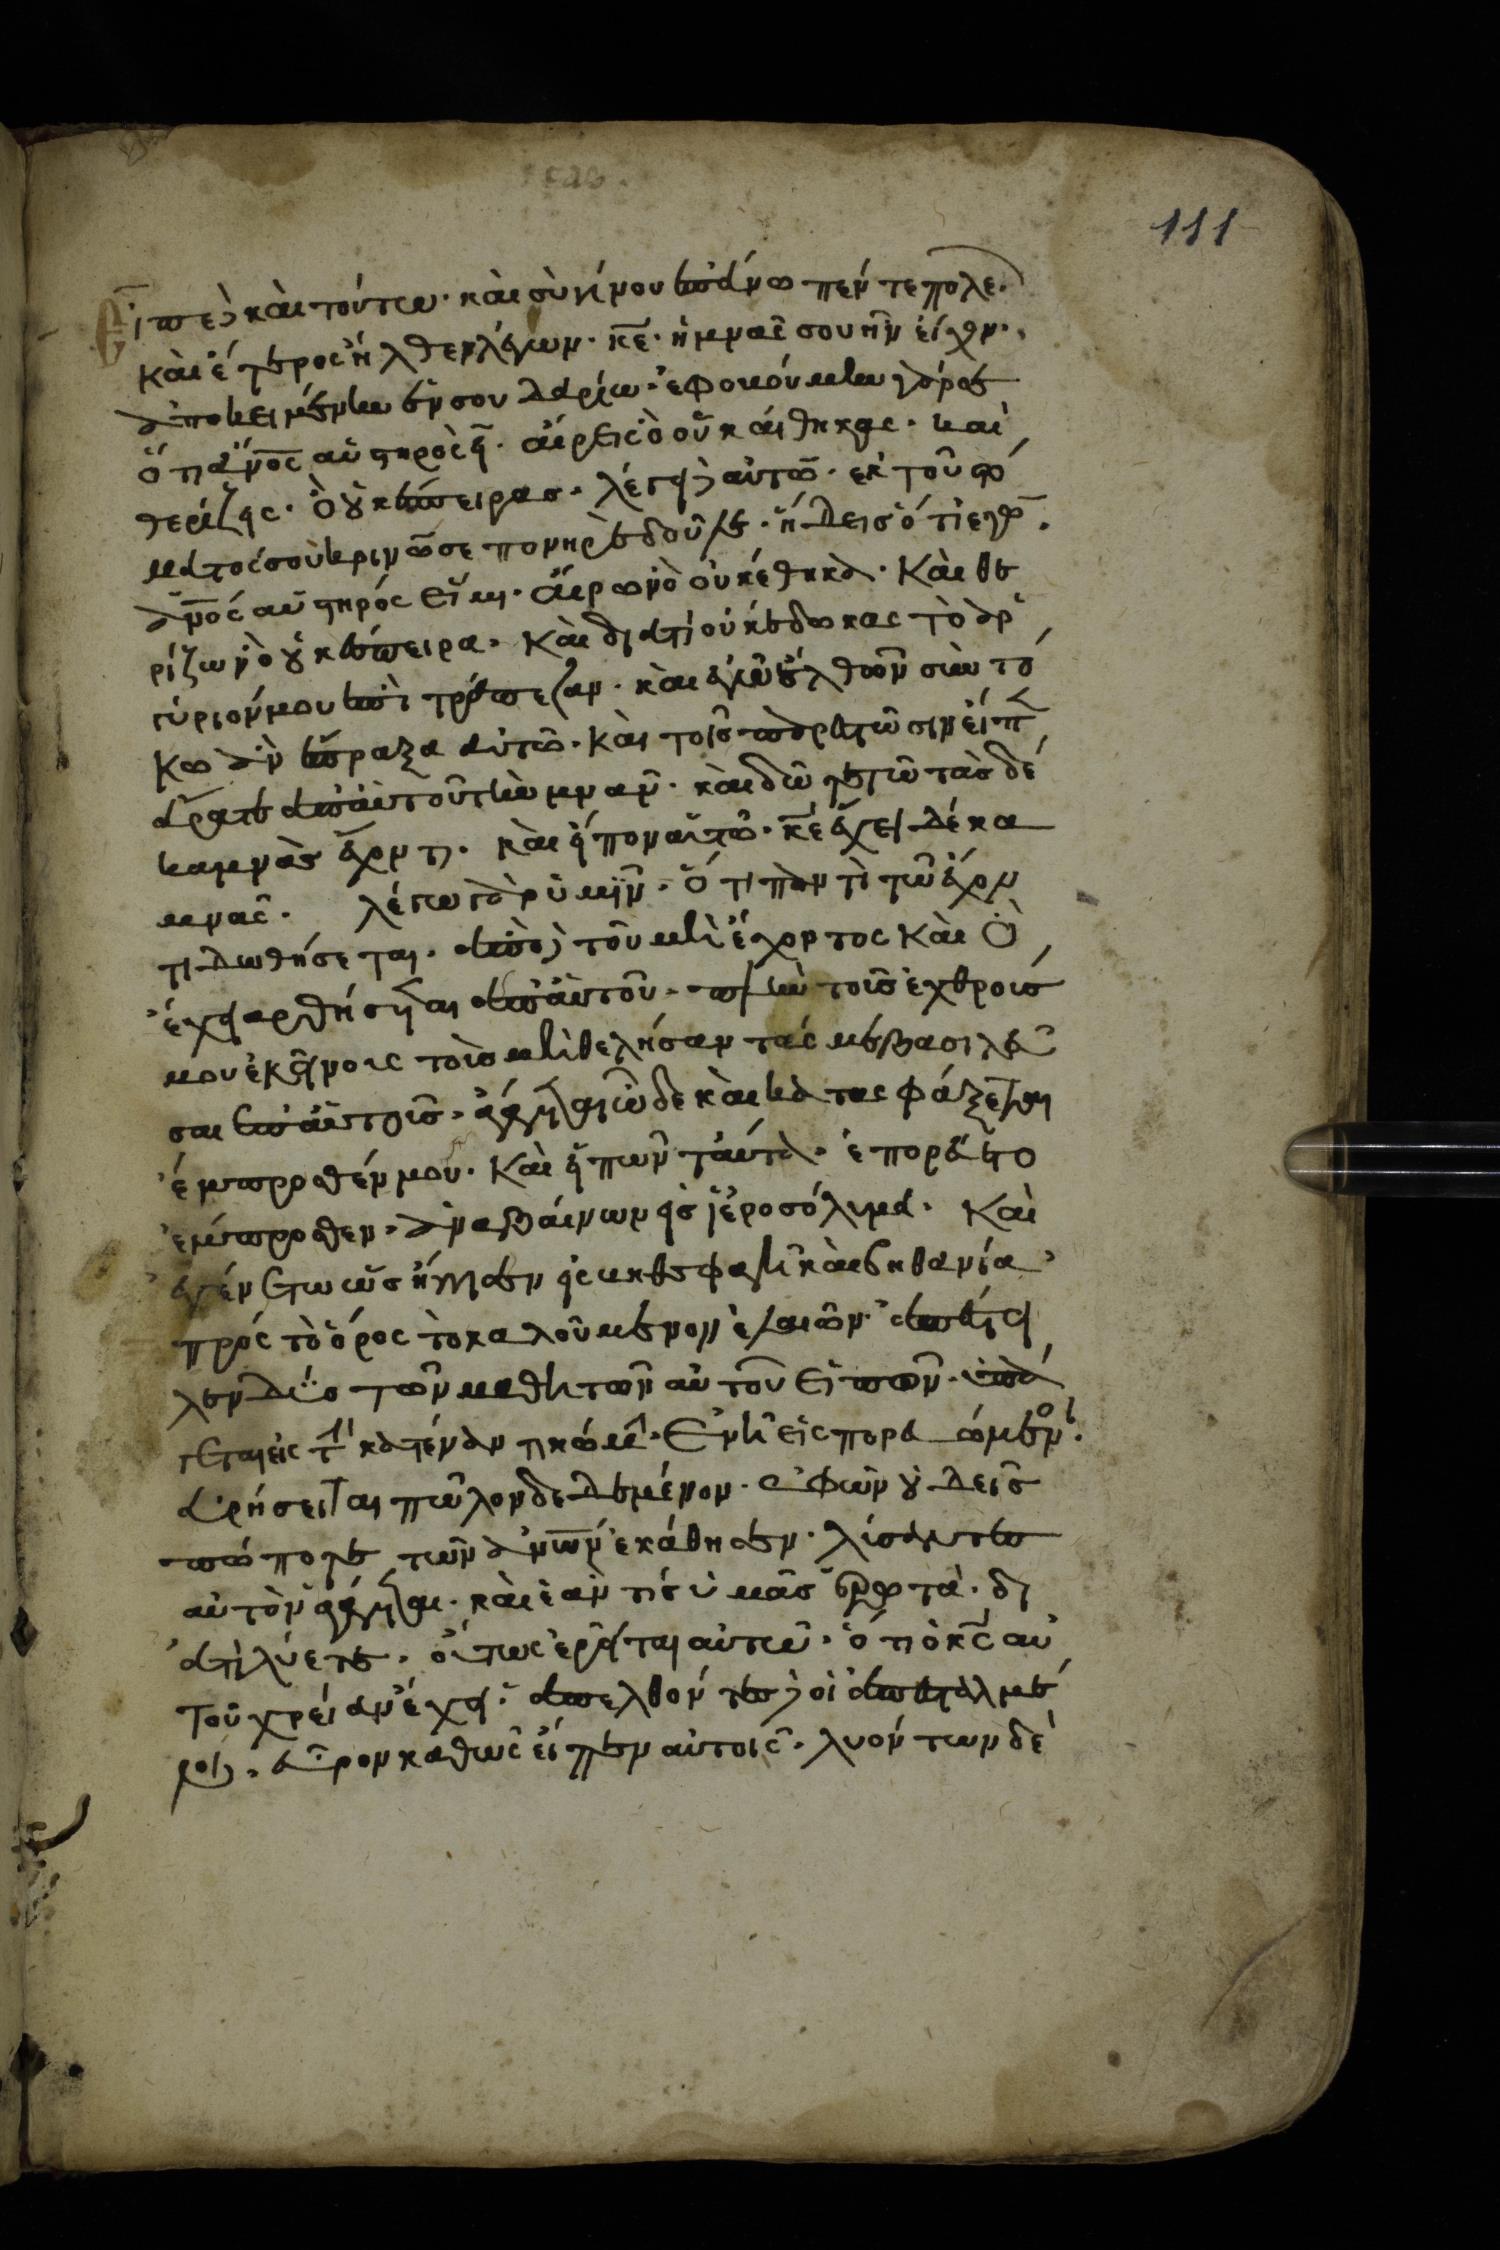 111
εἶπε δὲ καὶ τούτω· καὶ σὺ γίνου ἐπάνω πέντε πόλε·
καὶ ἕτερος ἦλθεν λέγων· κε̅· ἡ μνᾶ σου ἣν εἶχον·
ἀποκειμένην ἐν σουδαρίω· ἐφοβούμην γάρ σε
ὅτι ἄνο̅ς αὐστηρὸς εἶ· αἴρεις ὃ οὐκ ἔθηκας· καὶ
θερίζεις· ὃ οὐκ ἔσπειρας· λέγει δὲ αὐτῶ· ἐκ τοῦ στό
ματός σου κρινῶ σε πονηρὲ δοῦλε· ἤδεις ὅτι ἐγὼ
ἄνο̅ς αὐστηρός εἰμι· αἴρων ὃ οὐκ ἔθηκα· καὶ θε
ρίζων ὃ οὐκ ἔσπειρα· καὶ διατί οὐκ ἔδωκας τὸ ἀρ
γύριόν μου ἐπὶ τράπεζαν· καὶ ἐγὼ ἐλθὼν σὺν τό
κω ἂν ἔπραξα αὐτῶ· καὶ τοῖς παρεστῶσιν εἶπεν
ἄρατε ἀπ' αὐτοῦ τὴν μνᾶν· καὶ δότε τῶ τὰς δέ
κα μνᾶς ἔχοντι· καὶ εἶπον αὐτῶ· κε̅ ἔχει δέκα
μνᾶς· λέγω γὰρ ὑμῖν· ὅτι παντὶ τῶ ἔχον
τι δωθήσεται· ἀπὸ δὲ τοῦ μὴ ἔχοντος καὶ ὃ
ἔχει ἀρθήσεται ἀπ' αὐτοῦ· πλὴν τοὺς ἐχθρούς
μου ἐκείνοις τοὺς μὴ θελήσαντάς με βασιλεῦ
σαι ἐπ' αὐτούς· ἀγάγετε ὧδε καὶ κατασφάξετε
ἔμπροσθέν μου· καὶ εἰπὼν ταῦτα· ἐπορεύετο
ἔμπροσθεν· ἀναβαίνων εἰς ἱεροσόλυμα· καὶ
ἐγένετο ὡς ἤγγισεν εἰς βηθσφαγὴ καὶ βηθανία·
πρός τὸ ὄρος τὸ καλούμενον ἐλαιῶν· ἀπέστει
λεν δύο τῶν μαθητῶν αὐτοῦ εἰπών· ὑπά
γετε εἰς τὴν κατέναντι κώμην· ἐν ἧ εἰσπορευόμενοι·
εὑρήσεται πῶλον δεδεμένον· ἐφ' ὃν οὐδεὶς
πώποτε τῶν ἀνω̅ν ἐκάθησεν· λύσαντες
αὐτὸν ἀγάγετε· καὶ ἐάν τις ὑμᾶς ἐρωτᾶ· δι
ατί λύετε· οὕτως ἐρεῖται αὐτῶ· ὅτι ὁ κς̅ αὐ
τοῦ χρείαν ἔχει· ἀπελθόντες δὲ οἱ ἀπεσταλμέ
νοι· εὗρον καθὼς εἶπεν αὐτοῖς· λυόντων δὲ